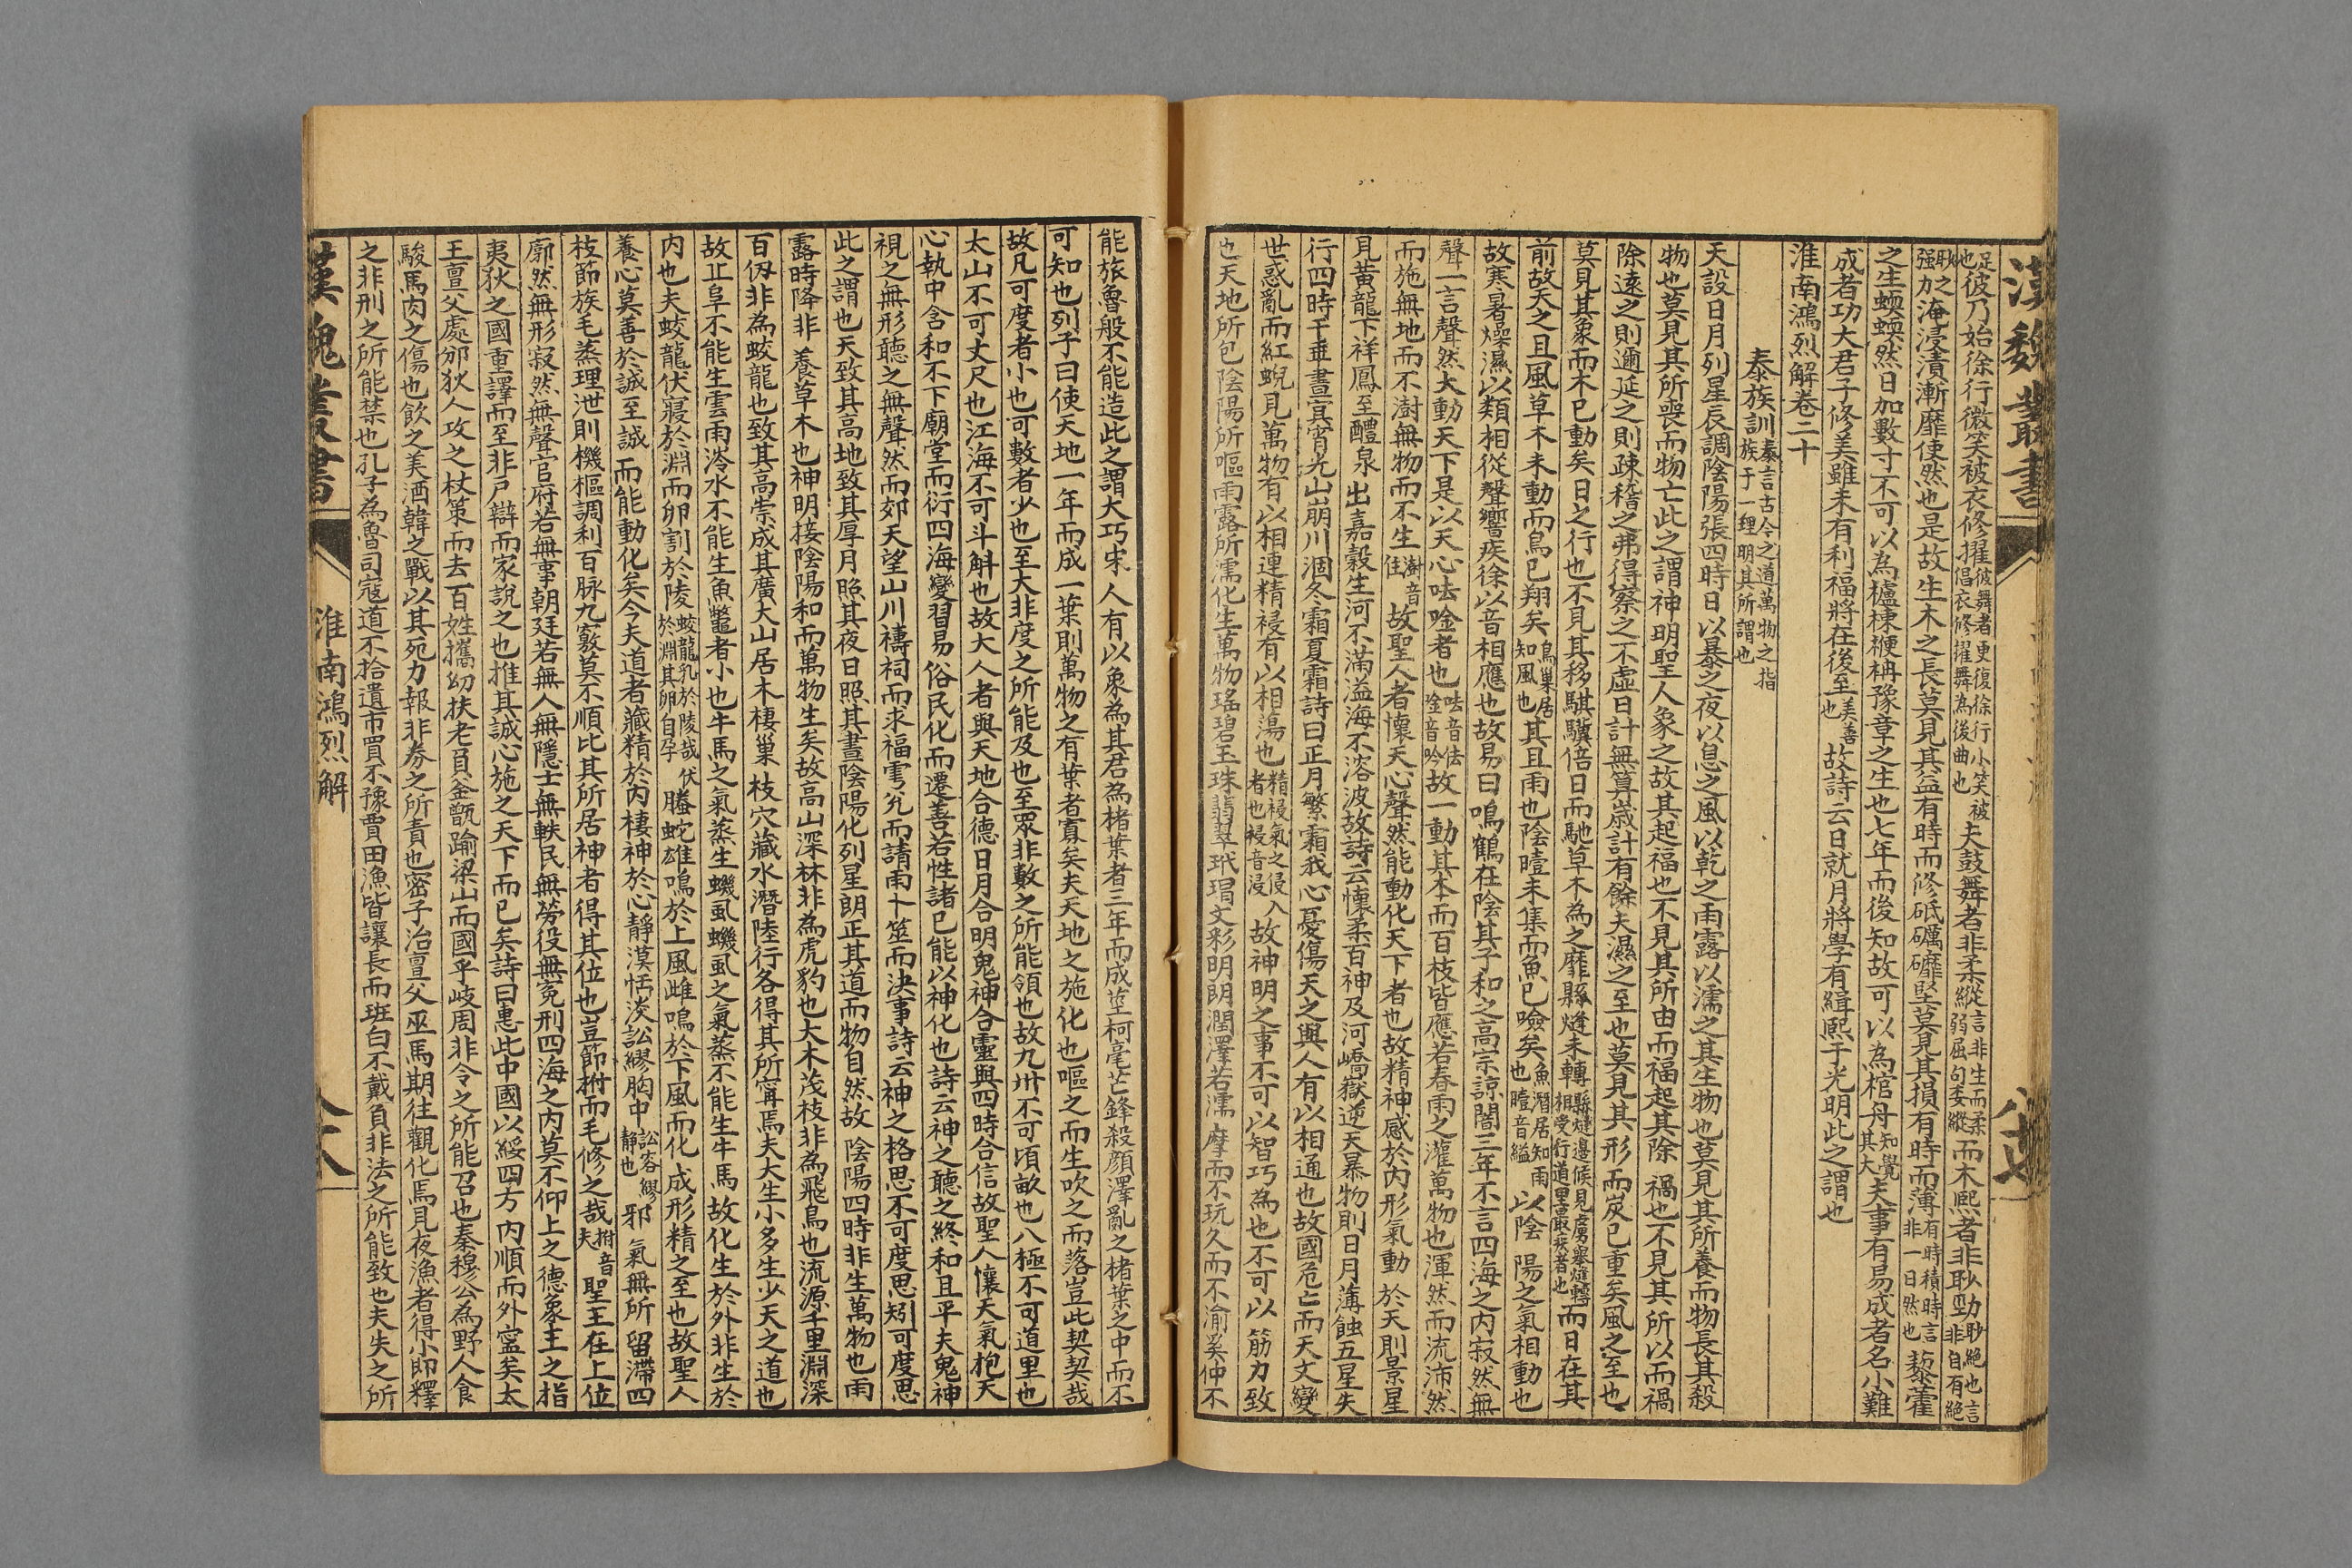 漢魏叢書
足彼乃始徐行微笑被衣修擢彼舞者更復徐行小笑被
也倡衣修擢舞為後曲也夫鼓舞者非柔縱言非生而柔縱弱屈句委縱而木熙者非眇勁眇絕也言非自有絕
眇之強加淹浸漬漸靡使然也是故生木之長莫見其益有時而修砥礪礳堅莫見其損有時而薄有時積時言非一日然也藜藿
之生蝡蝡然日加數寸不可以為櫨棟楩柟豫章之生也七年而後知故可以為棺舟知覺其大夫事有易成者名小難
成者功大君子修美雖未有利福將在後至美善也故詩云日就月將學有緝熙于光明此之謂也
淮南鴻烈解卷二十
泰族訓泰言古今之道萬物之指族于一理明其所謂也
天設日月列星辰調陰陽張四時日以暴之夜以息之風以乾之雨露以濡之其生物也莫見其所養而物長其殺
物也莫見其所喪而物亡此之謂神明聖人象之故其起福也不見其所由而福起其除禍也不見其所以而禍
除遠之則邇延之則疎稽之弗得察之不虛日計無算歲計有餘夫濕之至也莫見其形而炭已重矣風之至也
莫見其象而木已動矣日之行也不見其移騏驥倍日而馳草木為之靡縣熢未轉縣熢邊候見虜舉熢轉相受行道里最疾者也而日在其
前故天之且風草木未動而鳥已翔矣鳥巢居知風也其且雨也陰曀未集而魚已噞矣魚潛居知雨也曀音縊以陰陽之氣相動也
故寒暑燥濕以類相從聲響疾徐以音相應也故易曰鳴鶴在陰其子和之高宗諒闇三年不言四海之內寂然無
聲一言聲然大動天下是以天心呿唫者也呿音佉唫音吟故一動其本而百枝皆應若春雨之灌萬物也渾然而流沛然
而施無地而不澍無物而不生澍音住故聖人者懷天心聲然能動化天下者也故精神感於內形氣動於天則景星
見黃龍下祥鳳至醴泉出嘉穀生河不滿溢海不溶波故詩云懷柔百神及河嶠嶽逆天暴物則日月薄蝕五星失
行四時干乖晝冥宵光山崩川涸冬霜夏霜詩曰正月繁霜我心憂傷天之與人有以相通也故國危亡而天文變
世惑亂而虹蜺見萬物有以相連精祲有以相蕩也精祲氣之侵入者也祲音浸故神明之事不可以智巧為也不可以筋力致
也天地所包陰陽所嘔雨露所濡化生萬物瑤碧玉珠翡翠玳瑁文彩明朗潤澤若濡摩而不玩久而不渝奚仲不
能旅魯般不能造此之謂大巧宋人有以象為其君為楮葉者三年而成莖柯毫芒鋒殺顏澤亂之楮葉之中而不
可知也列子曰使天地一年而成一葉則萬物之有葉者寡矣夫天地之施化也嘔之而生吹之而落豈此契契哉
故凡可度者小也可數者少也至大非度之所能及也至眾非數之所能領也故九州不可頃畝也八極不可道里也
太山不可丈尺也江海不可斗斛也故大人者與天地合德日月合明鬼神合靈與四時合信故聖人懷天氣抱天
心執中含和不下廟堂而衍四海變習易俗民化而遷善若性諸己能以神化也詩云神之聽之終和且平夫鬼神
視之無形聽之無聲然而郊天望山川禱祠而求福雩兌而請雨卜筮而決事詩云神之格思不可度思矧可度思
此之謂也天致其高地致其厚月照其夜日照其晝陰陽化列星朗正其道而物自然故陰陽四時非生萬物也雨
露時降非養草木也神明接陰陽和而萬物生矣故高山深林非為虎豹也大木茂枝非為飛鳥也流源千里淵深
百仞非為蛟龍也致其高崇成其廣大山居木棲巢枝穴藏水潛陸行各得其所寧焉夫大生小多生少天之道也
故丘阜不能生雲雨涔水不能生魚鱉者小也牛馬之氣蒸生蟣虱蟣虱之氣蒸不能生牛馬故化生於外非生於
內也夫蛟龍伏寢於淵而卵割於陵蛟龍乳於陵哉伏於淵其卵自孕螣蛇雄鳴於上風雌鳴於下風而化成形精之至也故聖人
養心莫善於誠至誠而能動化矣今夫道者藏精於內棲神於心靜漠恬淡訟繆胸中訟容繆靜也邪氣無所留滯四
枝節族毛蒸理泄則機樞調利百脉九竅莫不順比其所居神者得其位也豈節拊而毛修之哉拊音夫聖王在上位
廓然無形寂然無聲官府若無事朝廷若無人無隱士無軼民無勞役無冤刑四海之內莫不仰上之德象主之指
夷狄之國重譯而至非戶辯而家說之也推其誠心施之天下而已矣詩曰惠此中國以綏四方內順而外寧矣太
王亶父處邠狄人攻之杖策而去百姓攜幼扶老負釜甑踰梁山而國乎岐周非令之所能召也秦穆公為野人食
駿馬肉之傷也飲之美酒韓之戰以其死力報非券之所責也密子治亶父巫馬期往觀化焉見夜漁者得小即釋
之非刑之所能禁也孔子為魯司寇道不拾遺市買不豫賈田漁皆讓長而班白不戴負非法之所能致也夫矢之所
漢魏叢書
淮南鴻烈解